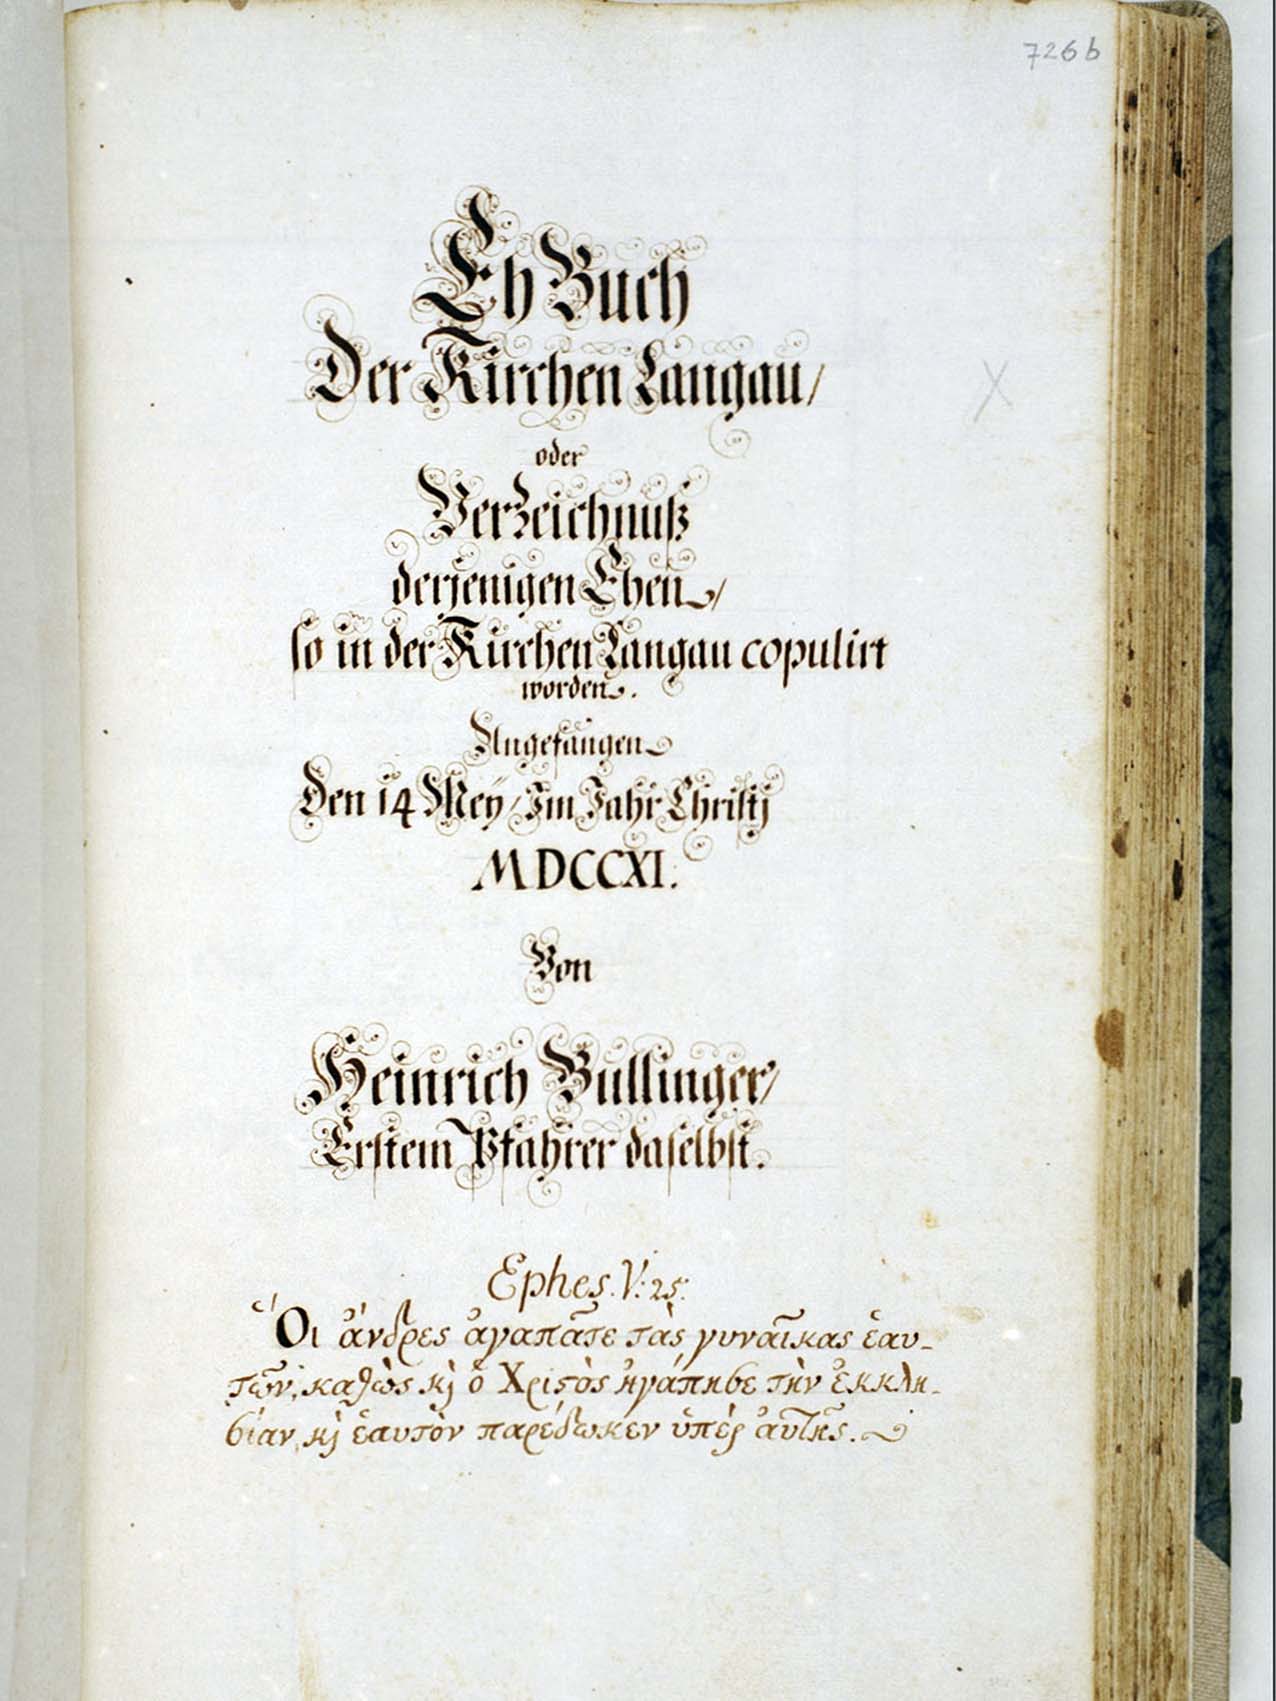 726b
Eh Buch
Der Kirchen Langau/
oder
Verzeichnuß
derjenigen Ehen/
so in der Kirchen Langau copulirt
worden.
Angefangen
Den 14 Mey/ Im Jahr Christj
MDCCXI.
Von
Heinrich Bullinger/
Erstem Pfahrer daselbst.
Ephes. V: 25:
Ὁι ἄνδρες ἀγαπᾶτε τὰς γυναῖκας ἑαυ-
τῶν, καθὼς κỳ ὁ Χριϛὸς ἠγάπησε τὴν ἐκκλη-
σίαν, κỳ ἑαυτὸν παρέδωκεν ὑπὲρ ἀυτῆς.